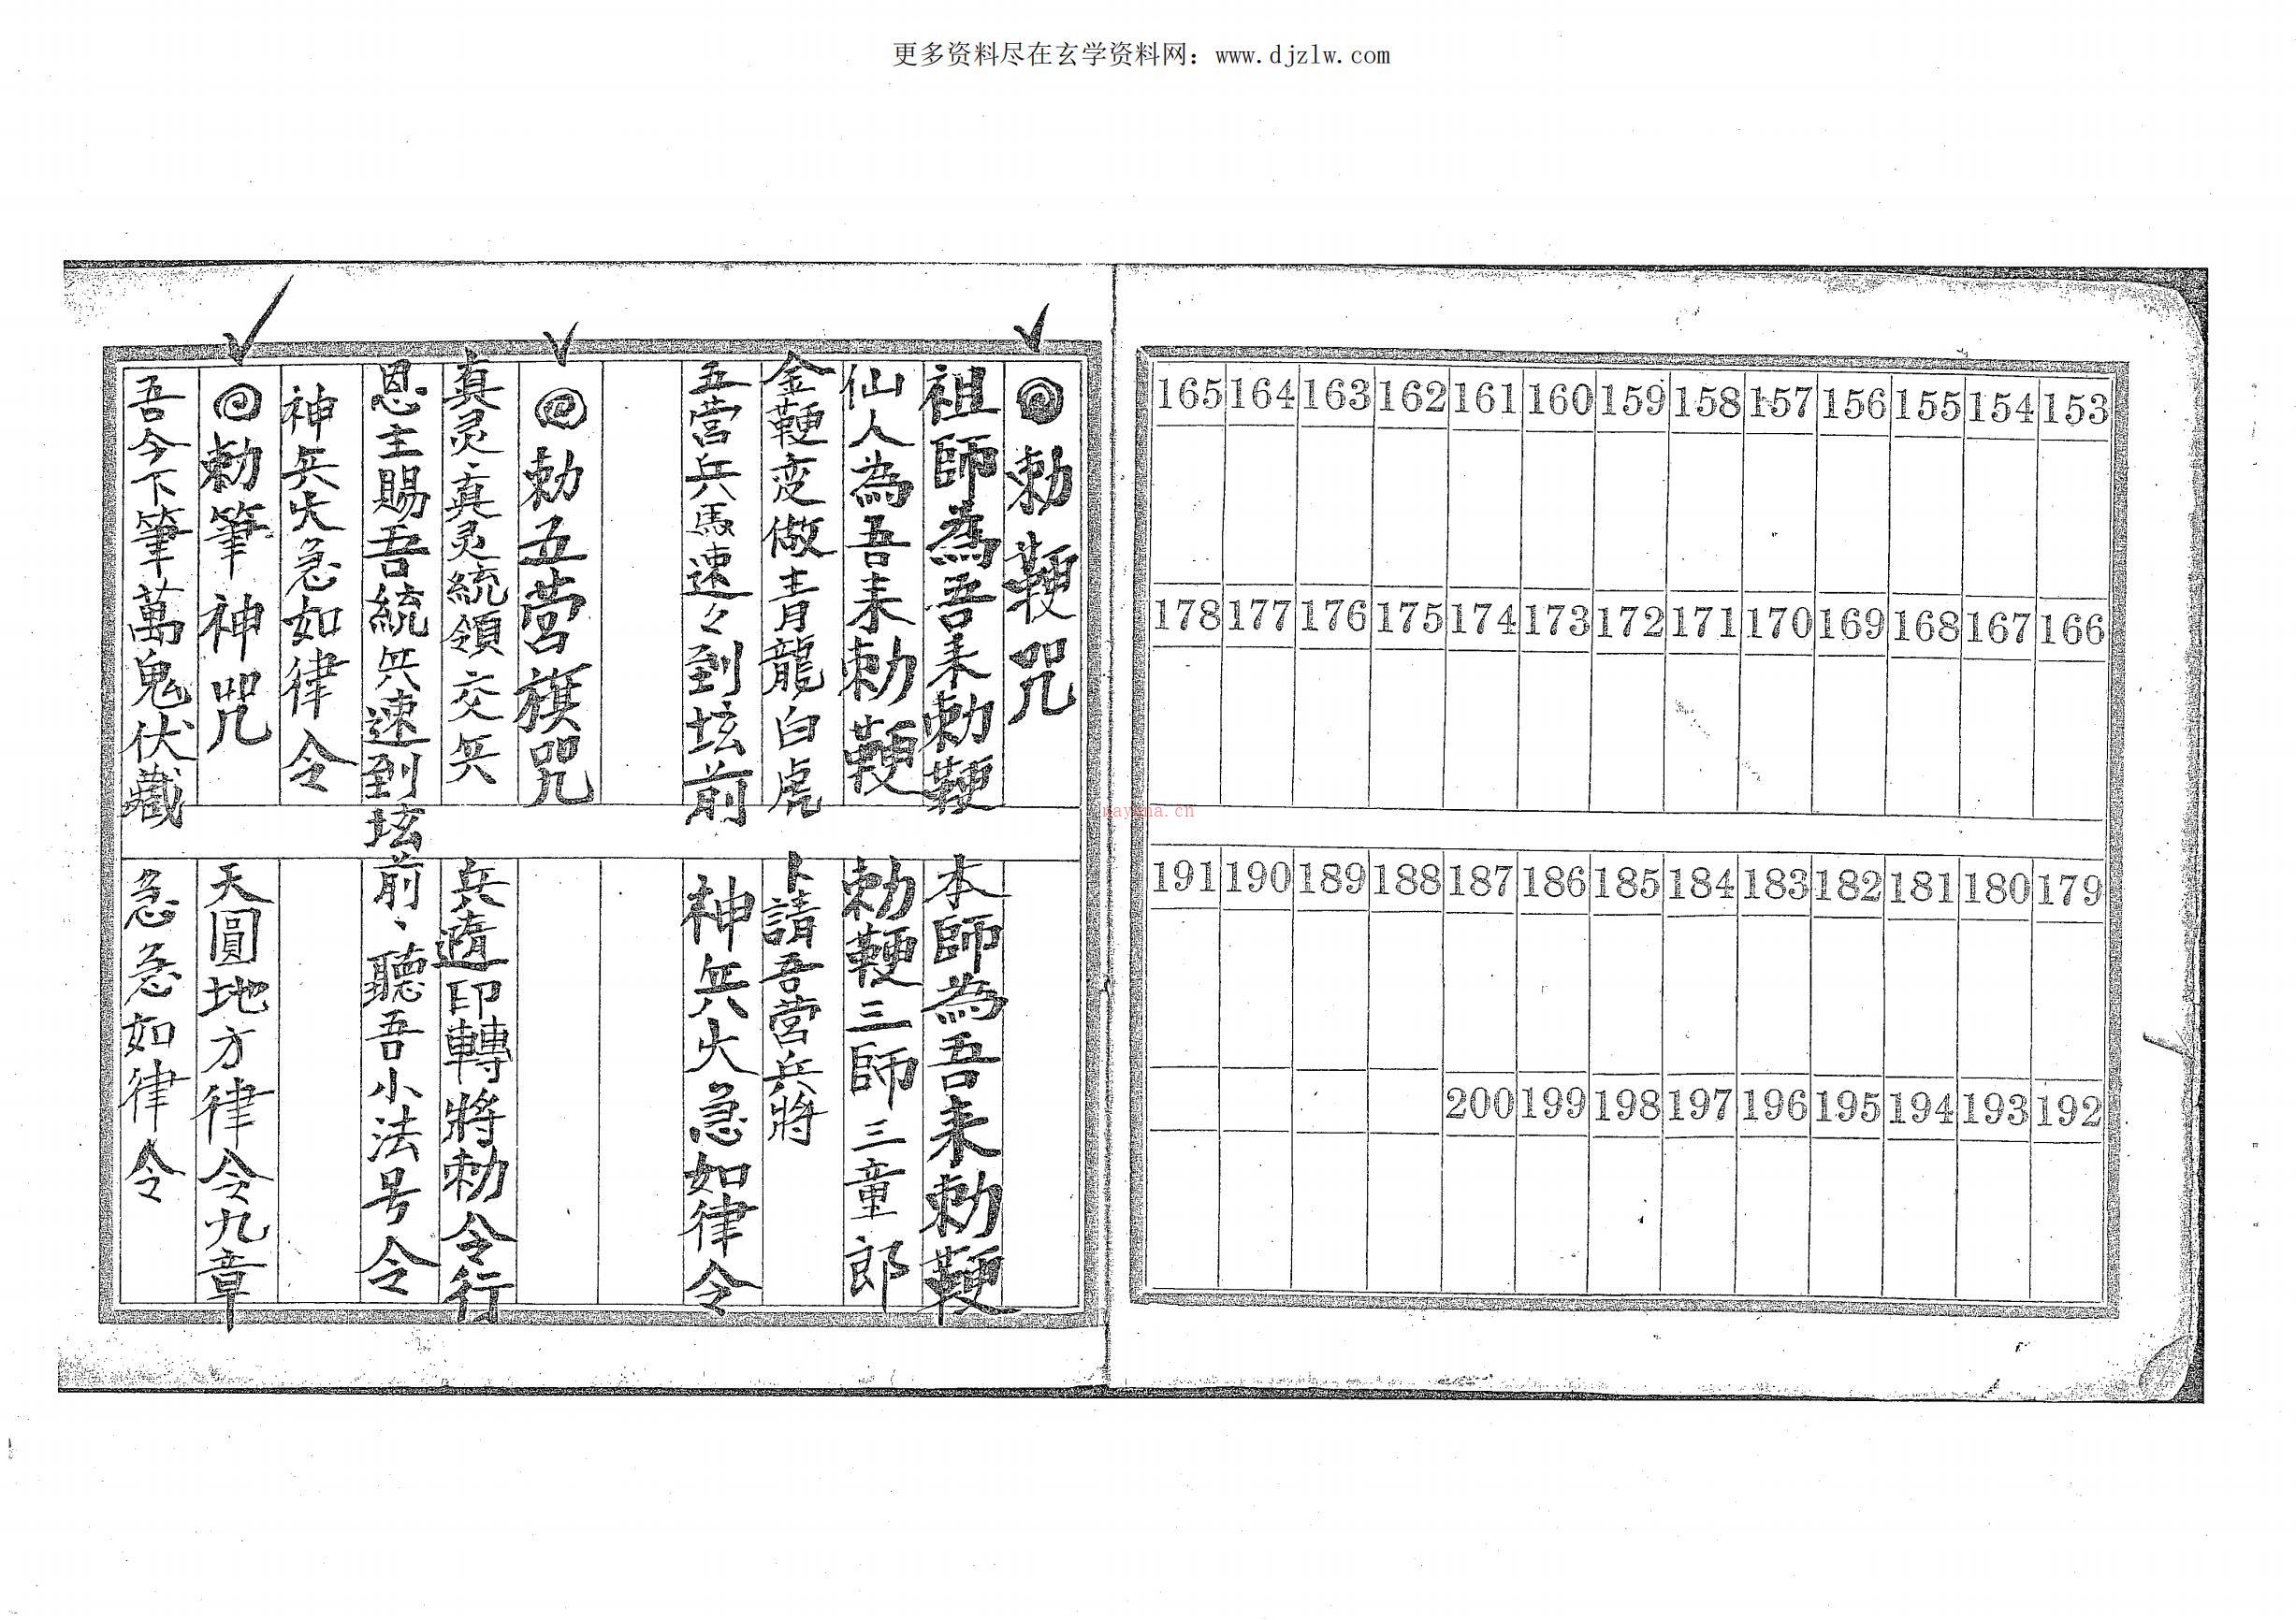 更多资料尽在玄学资料网：www.djzlw.com
165 164 163 162 161 160 159 158 157 156 155 154 153
178 177 176 175 174 173 172 171 170 169 168 167 166
191 190 189 188 187 186 185 184 183 182 181 180 179
200 199 198 197 196 195 194 193 192
勅鞭咒
祖師為吾来勅鞭 本師為吾来勅鞭
仙人為吾来勅鞭 勅鞭三師三童郎
金鞭变做青龍白虎 卜請吾營兵將
五营兵馬速々到坛前 神兵火急如律令
勅五营旗咒
真灵真灵統領交兵 兵遁印轉將勅令行
恩主賜吾統兵速到坛前、聽吾小法号令
神兵火急如律令
勅筆神咒 天圓地方律令九章
吾今下筆萬鬼伏藏 急急如律令